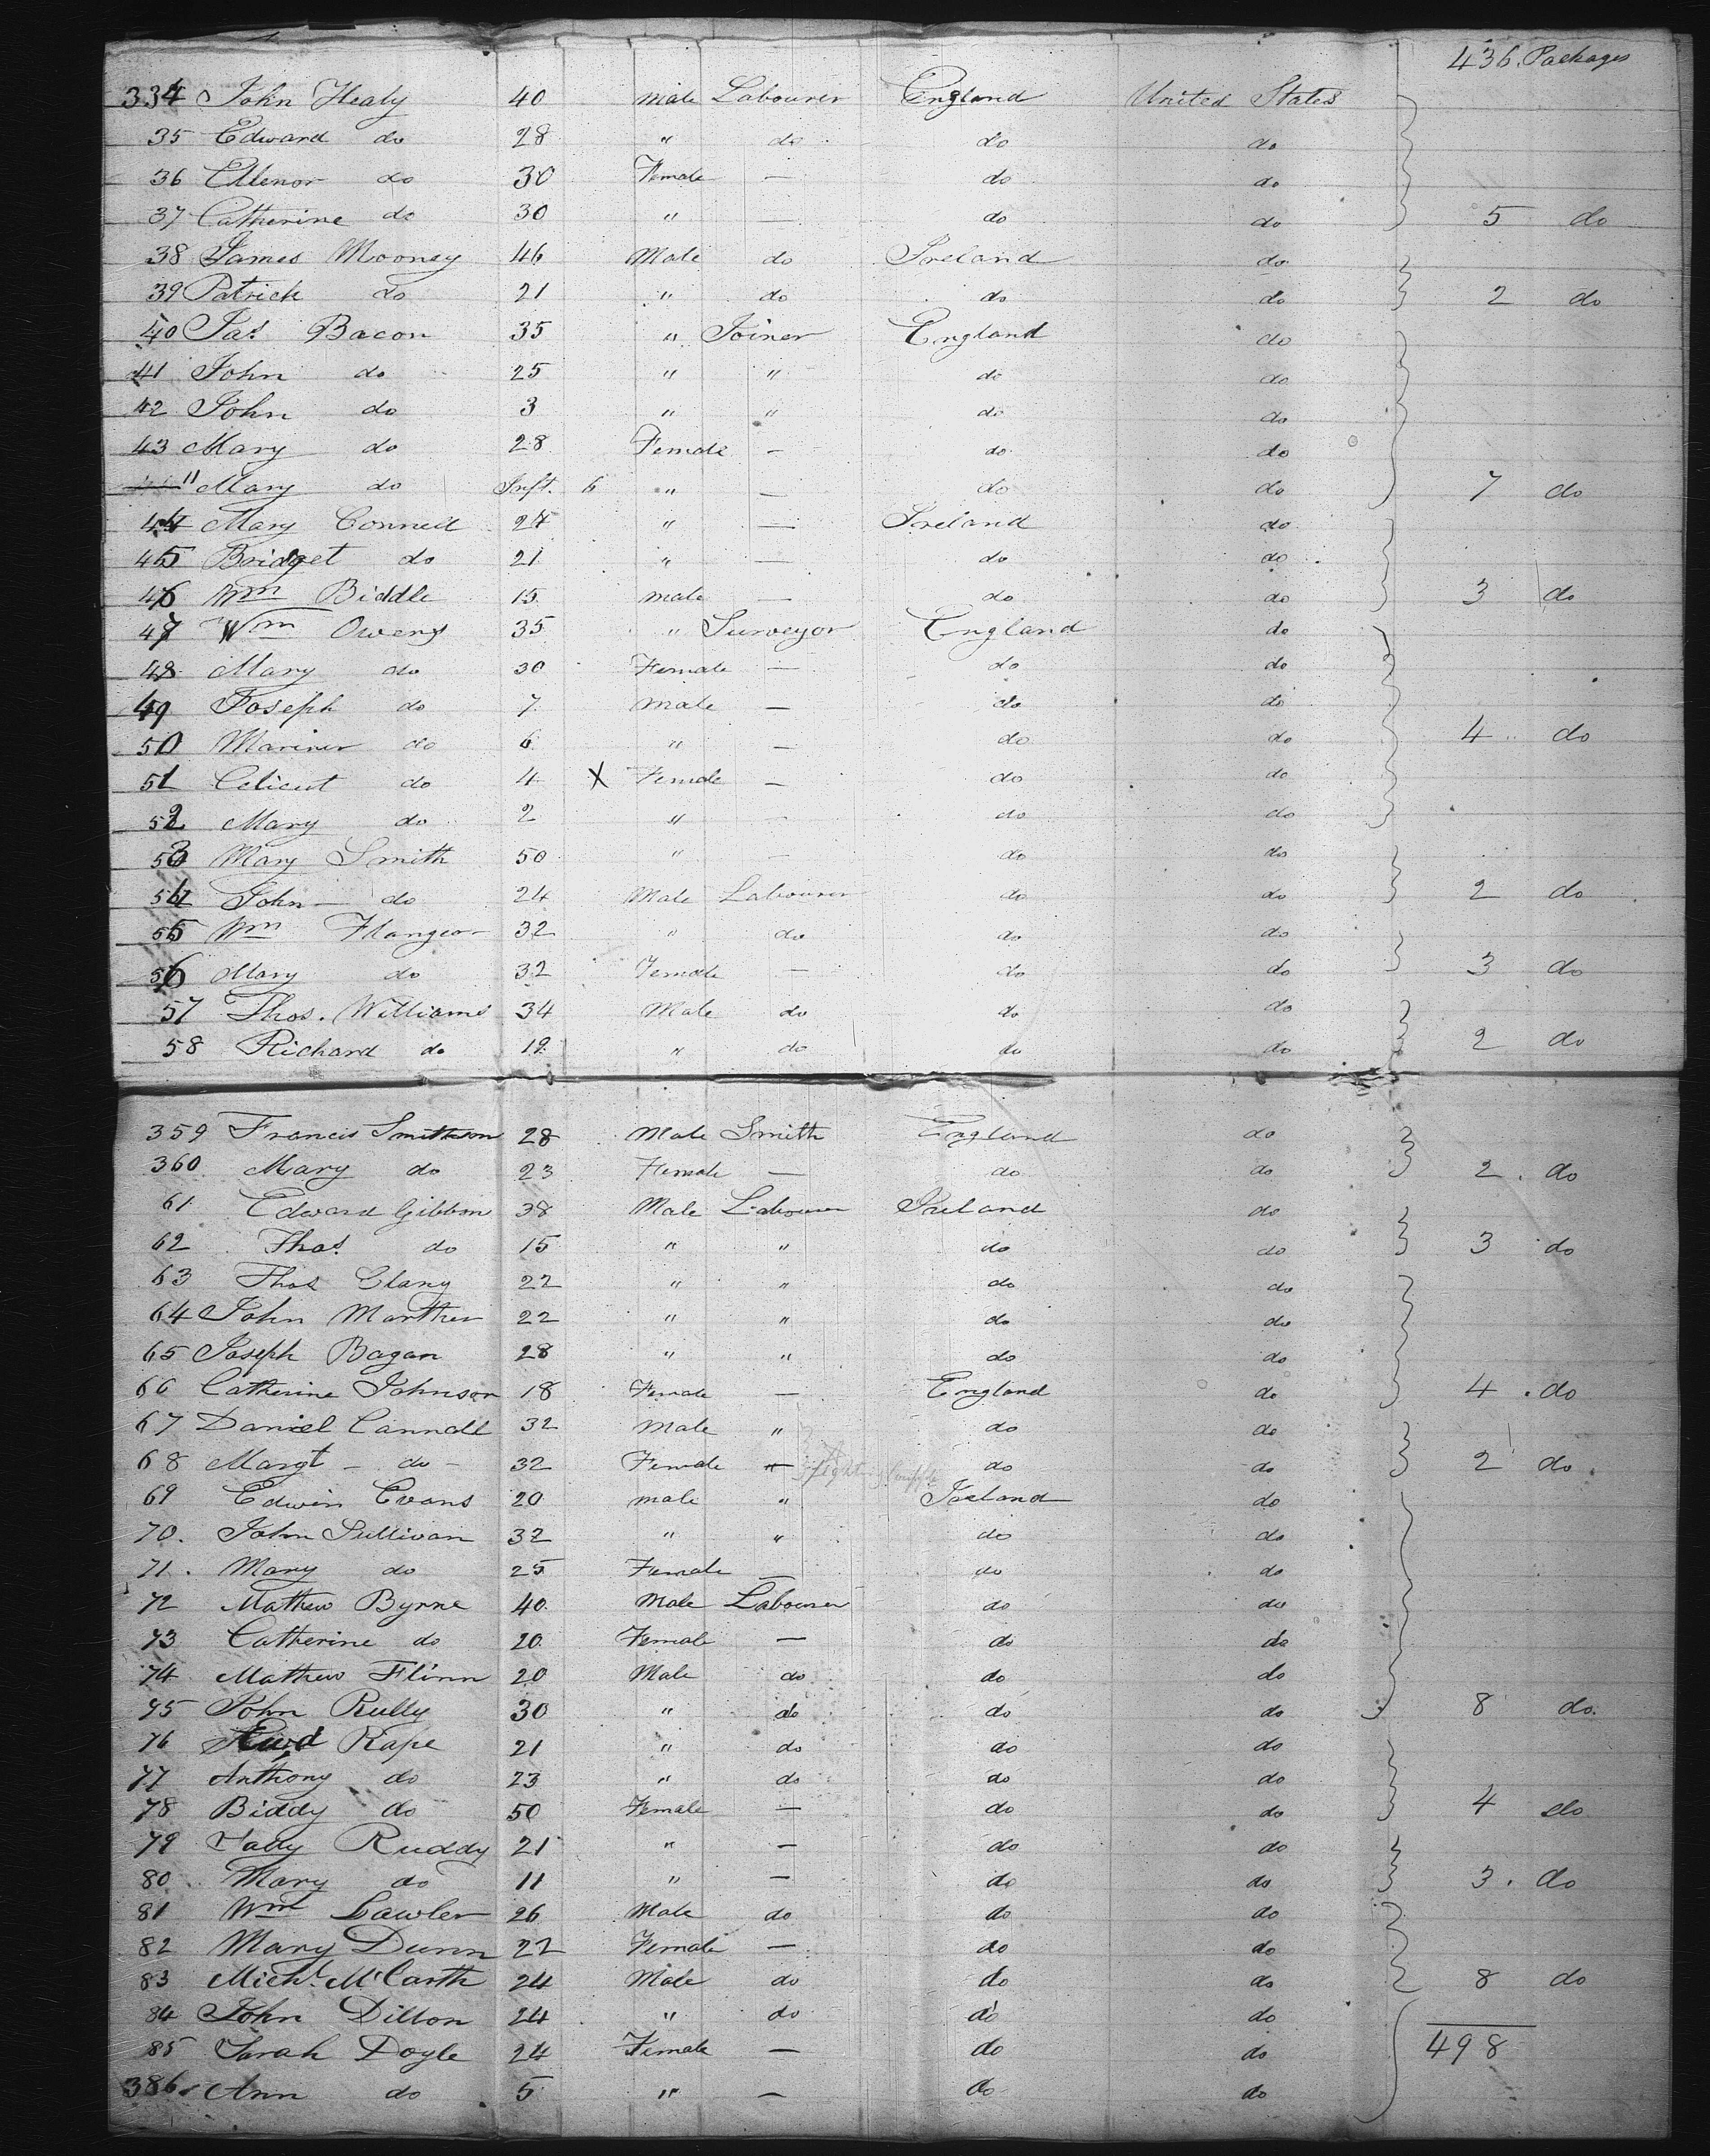 436. Packages
334 John Healy 40 Male Labourer England United States
35 Edward do 28 " do do do
36 Ellenor do 30 Female — do do
37 Catherine do 30 " — do do 5 do
38 James Mooney 46 Male do Ireland do
39 Patrick do 21 " do do do 2 do
40 Jas. Bacon 35 " Joiner England do
41 John do 25 " " do do
42 John do 3 " " do do
43 Mary do 28 Female — do do
" Mary do Inft. 6 " — do do 7 do
44 Mary Conneid 24 " — Ireland do
45 Bridget do 21 " — do do
46 Wm Biddle 15 male — do do 3 do
47 Wm Owens 35 " Surveyor England do
48 Mary do 30 Female — do do
49 Joseph do 7 male — do do
50 Mariner do 6 " — do do 4 do
51 do 4 X Female — do do
52 Mary do 2 " — do do
53 Mary Smith 50 " — do do
54 John do 24 Male Labourer do do 2 do
55 Wm 32 " do do do
56 Mary do 32 Female — do do 3 do
57 Thos. Williams 34 Male do do do
58 Richard do 19 " do do do 2 do
359 Francis Smithson 28 Male Smith England do
360 Mary do 23 Female — do do 2 . do
61 Edward Gibbon 38 Male Labourer Ireland do
62 Thos. do 15 " " do do 3 do
63 Thos Glany 22 " " do do
64 John Marther 22 " " do do
65 Joseph Bagan 28 " " do do
66 Catherine Johnson 18 Female — England do 4 . do
67 Daniel Cannall 32 Male " do do
68 Margt — do — 32 Female — do do 2 do
69 Edwin Evans 20 male " Ireland do
70. John Sullivan 32 " " do do
71. Mary do 25 Female — do do
72 Mathew Byrne 40 Male Labourer do do
73 Catherine do 20 Female — do do
74 Mathew Flinn 20 Male do do do
75 John Rully 30 " do do do 8 do.
76 Rape 21 " do do do
77 Anthony do 23 " do do do
78 Biddy do 50 Female — do do 4 do
79 Ruddy 21 " — do do
80 Mary do 11 " — do do 3 . do
81 Wm Lawler 26 Male do do do
82 Mary Dunn 22 Female — do do
83 Michl. McCarth 24 Male do do do 8 do
84 John Dillon 24 " do do do
85 Sarah Doyle 24 Female — do do 498
386 Ann do 5 " — do do